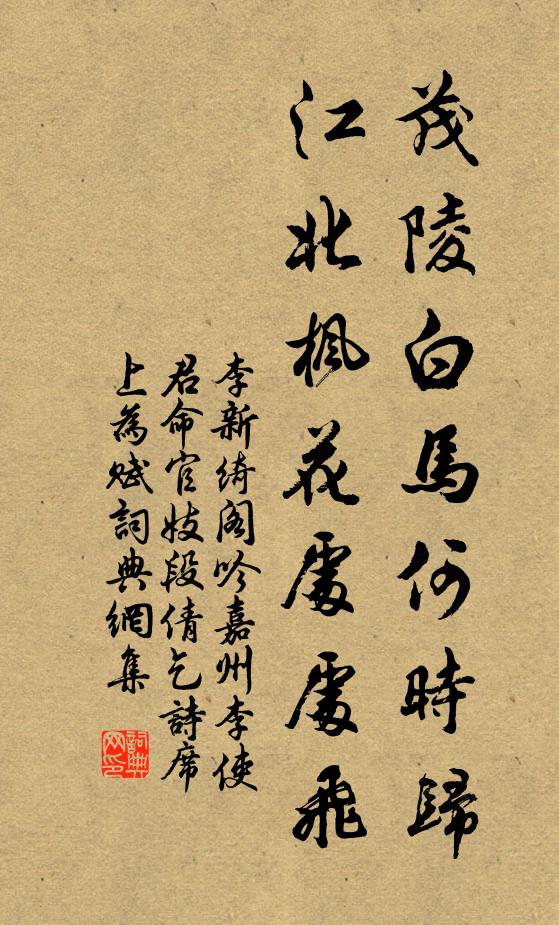 茂陵白馬何時歸
江北楓花處處飛
李新綺閣吟嘉州李使
君命官妓段倩乞詩席
上為賦詞典網集
詞典
网印